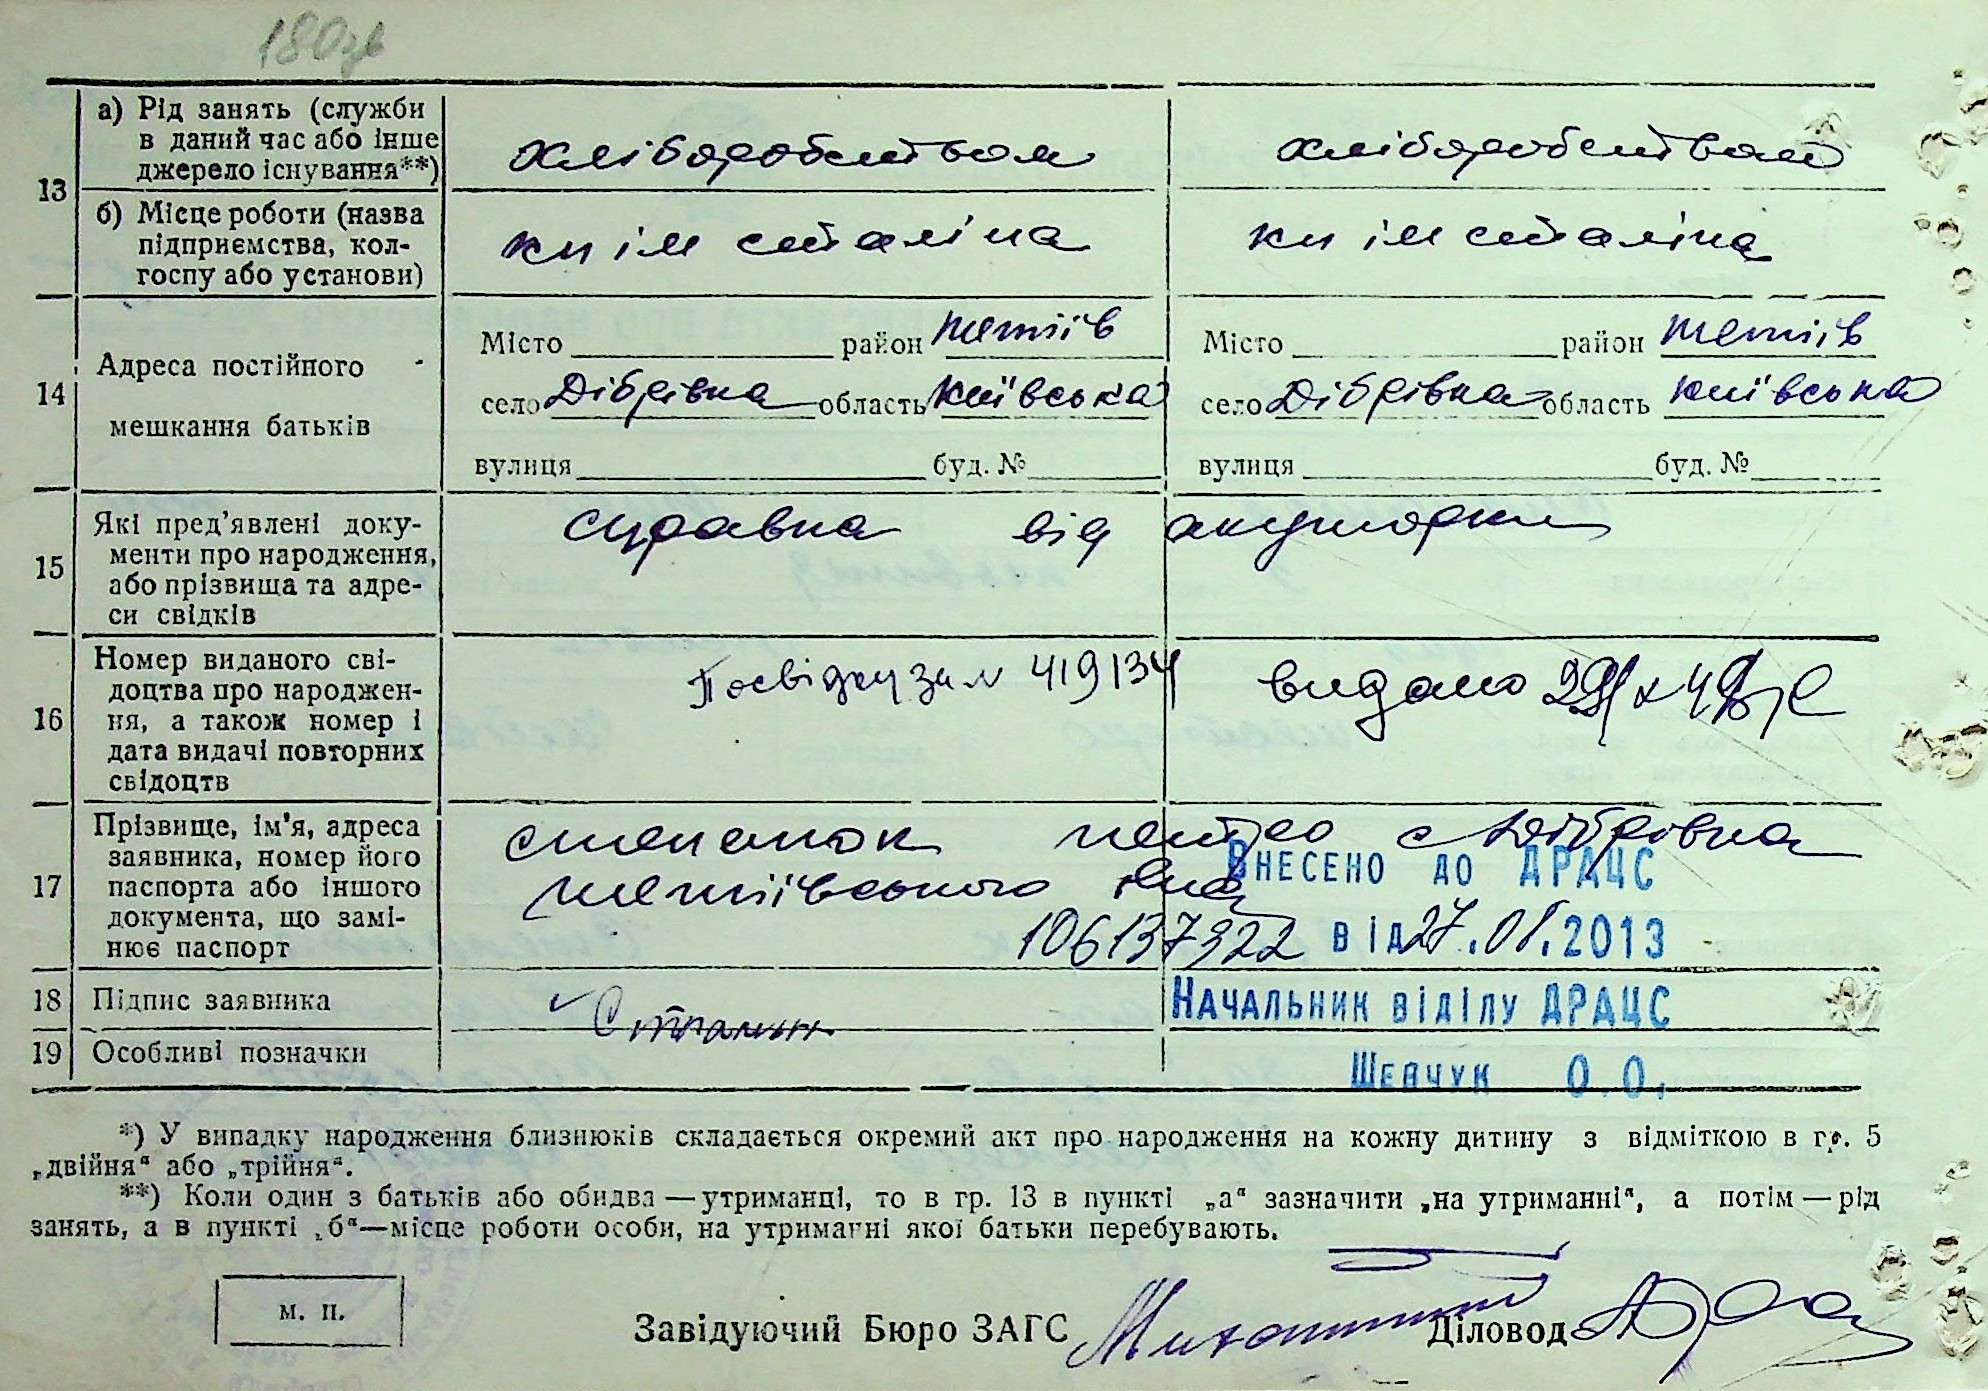 180зв
13
а) Рід занять (служби
в даний час або інше
джерело існування**)
хлібаробством
хлібаробством
б) Місце роботи (назва
підприємства, кол-
госпу або установи)
кп ім сталіна
кп ім сталіна
14
Адреса постійного
мешкання батьків
Місто район тетіїв
село Дібрівка область київська
вулиця буд. №
Місто район тетіїв
село Дібрівка область київська
вулиця буд. №
15
Які пред’явлені доку-
менти про народження,
або прізвища та адре-
си свідків
справка від акушорки
16
Номер виданого сві-
доцтва про народжен-
ня, а також номер і
дата видачі повторних
свідоцтв
Посвідку за № 419134 видано
17
Прізвище, ім'я, адреса
заявника, номер його
паспорта або іншого
документа, що замі-
нює паспорт
степанок петро с Дібрівка
тетіївського
106137922
Внесено до ДРАЦС
від 27.01.2013
Начальник віділу ДРАЦС
Шевчук О.О.
18
Підпис заявника
19
Особливі позначки
*) У випадку народження близнюків складається окремий акт про народження на кожну дитину з відміткою в гр. 5
„двійня“ або „трійня“.
**) Коли один з батьків або обидва — утриманці, то в гр. 13 в пункті „а“ зазначити „на утриманні“, а потім — рід
занять, а в пункті „б“—місце роботи особи, на утриманні якої батьки перебувають.
м. п.
Завідуючий Бюро ЗАГС
Діловод